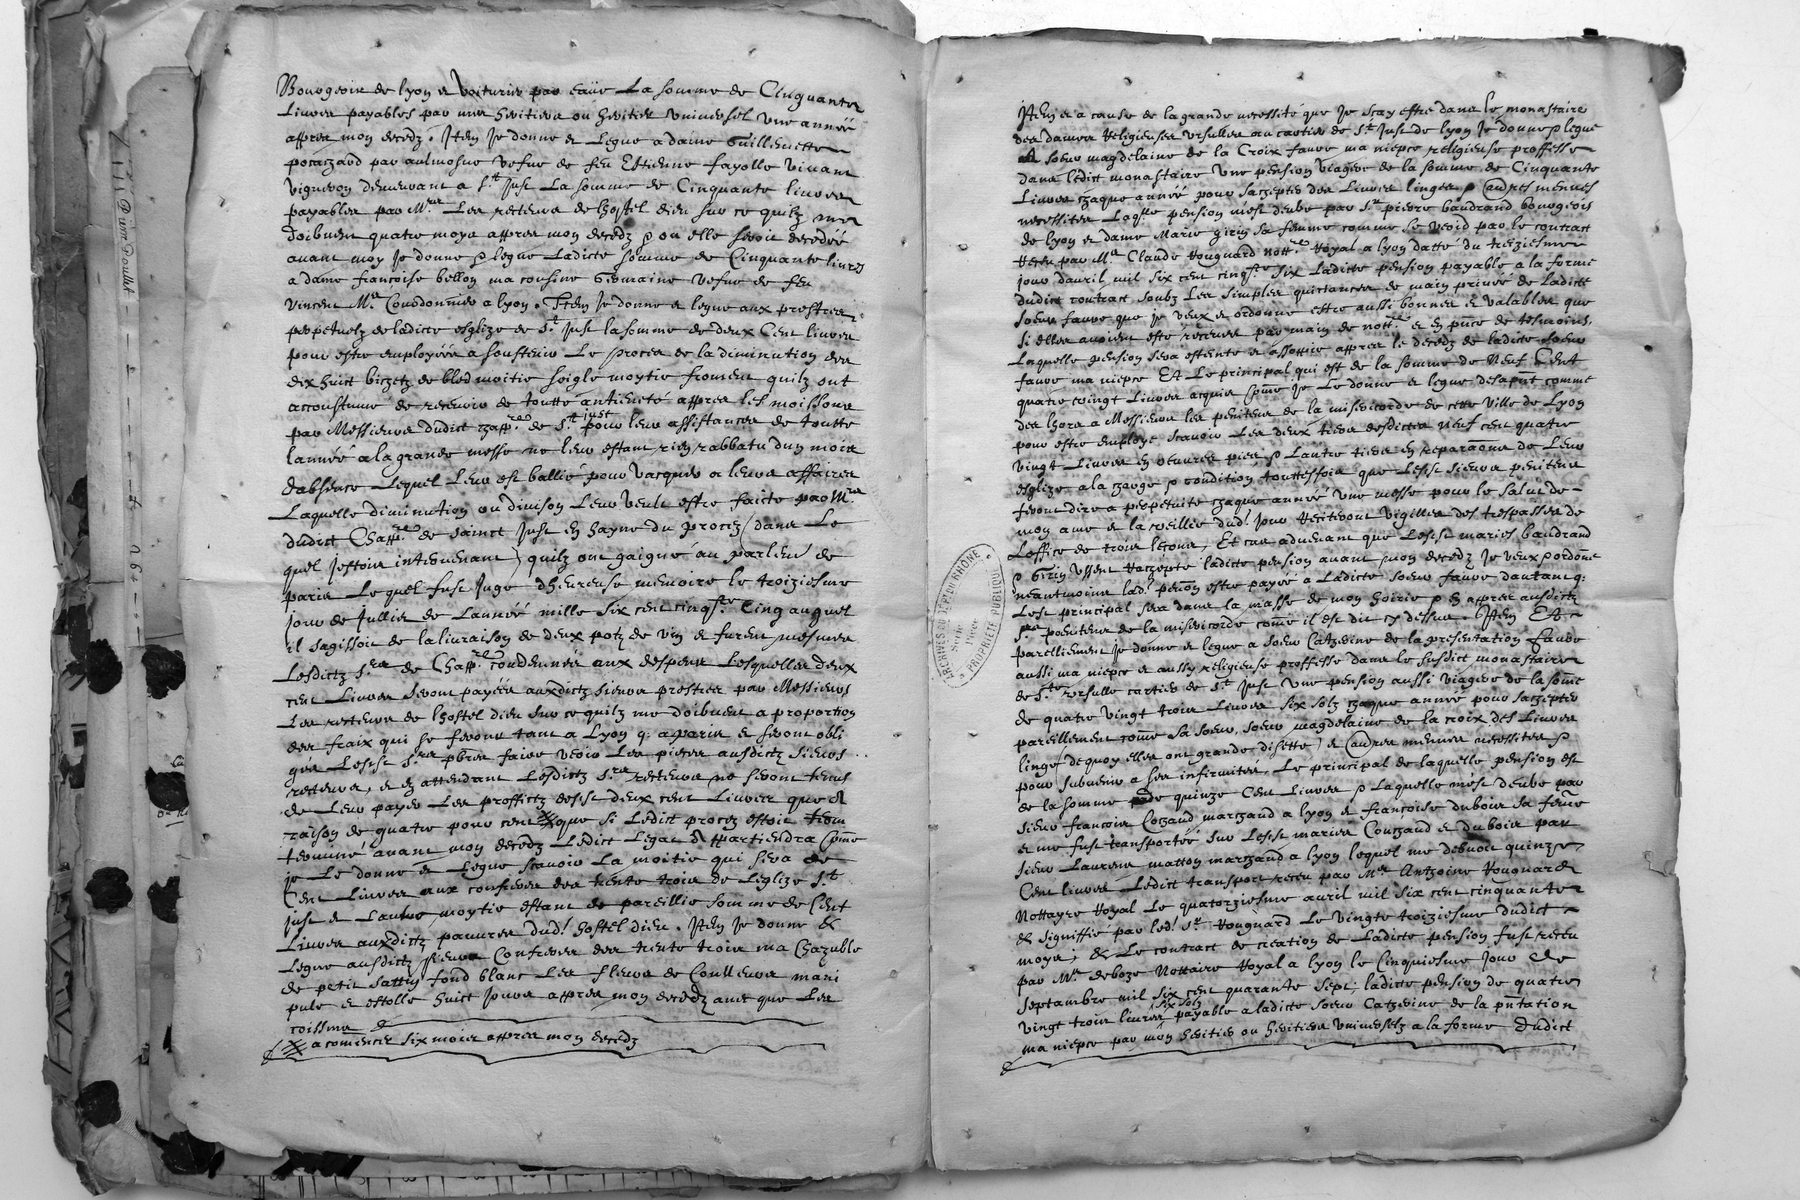 Bourgeois de lyon et voiturier par eaue La somme de Cinquante
Livres payables par mes heritiers ou heritier universel une année
appres mon decedz. Item Je donne et Legue a dame Guillemette
pocachard par aulmosne vefve de feu Estienne fayolle vivant
vigneron demeurant a St Just La somme de Cinquante livres
payables par Mrs Les recteurs de lhostel dieu sur ce quilz me
doibvent quatre moys appres mon decedz & ou elle seroit decedée
avant moy Je donne & legue Ladicte somme de Cinquante livres
a dame francoise bellon ma cousine Germaine vefve de feu
vincent Me Cordonnier a lyon. Item Je donne et legue aux prestres
perpetuelz de ladicte esglize de St Just la somme de deux Cent livres
pour estre employées a soustenir Le proces de la diminution des
dix huict bichetz de bled moitie seigle moytie froment quilz ont
accoustumé de recevoir de toutte antienété appres les moissons
par Messieurs dudict chapp.re de St just pour leur assistances de toutte
lannée a la grande messe ne leur estant rien rabbatu dun mois
dabsence Lequel Leur est ballié pour vacquer a leurs affaires
Laquelle diminution ou division Leur veult estre faicte par Mrs
dudict Chapp.re de sainct Just en hayne du procez (dans Le
quel jestois intervenant) quilz ont gaigné au parlem.t de
paris Lequel fust Jugé dheureuse memoire le troiziesme
jour de Jullier de Lannée mille six cent cinq.te Cinq auquel
il sagissoit de la livraison de deux potz de vin et furent mesmes
Lesdictz Srs de Chapp.re condennés aux despens Lesquelles deux
cent Livres seront payées ausdictz sieurs prestres par Messieurs
Les recteurs de lhostel dieu sur ce quilz me doibvent a proportion
des fraix qui se feront tant a Lyon q. a paris et seront obli
gés Lesd. Srs pbres faire veoir Les pieces ausdictz sieurs
recteurs, et en attendant Lesdictz Srs recteurs ne seront tenus
de Leur payer Les proffictz desd. deux cent Livres que a
raison de quatre pour cent que si Ledict procez estoit
terminé avant mon decedz Ledict Legat appartiendra Comme
je Le donne et Legue scavoir La moitie qui sera de
Cent Livres aux confreres des trente trois de Leglize St
just et Lautre moytie estant de pareillie somme de Cent
Livres auxdictz pauvres dud. hostel dieu. Item Je donne &
Legue ausdictz sieurs Confreres des trente trois ma Chazuble
de petit sattin fond blanc Les fleurs de Coulleurs mani
pule et estolle huict Jours appres mon decedz avec que Les
coissins
a comencer six mois appres mon decedz
Item et a cause de la grande necessité que Je scay estre dans le monastaire
des dames Religieuses ursulles au cartier de St Just de lyon Je donne & legue
a soeur magdelaine de la Croix faure ma niepce religieuse proffesse
dans ledict monastaire une pension viagere de la somme de Cinquante
Livres chaque année pour sachepter des Livres linges & autres menues
necessites Laq.le pension mest deube par Sr pierre baudrand bourgeois
de lyon et dame Marie girin sa femme comme se veoid par le contract
receu par Me Claude Vougnard nott.re Royal a lyon datté du treiziesme
jour davril mil six cent cinq.te six Ladicte pension payable a la forme
dudict contract soubz Les simples quictances de main privée de Ladicte
soeur faure que je veux et ordonne estre aussi bonnes et valables que
si elles avoient esté receues par main de nott.re et en pnce de tesmoins,
Laquelle pension sera esteinte et assoppie appres le decedz de ladicte soeur
faure ma niepce Et Le principal qui est de la somme de Neuf Cent
quatre vingt Livres acquis comme je Le donne et legue desaprnt comme
des lhors a Messieurs les penitens de la misericorde de cette ville de Lyon
pour estre employé scavoir Les deux tiers desdictes neuf cent quatre
vingt Livres en oeuvres pies & Lautre tiers en reparaõns de Leur
esglize a la charge & condition touttesfois que Lesd. sieurs penitens
feront dire a perpetuité chaque année une messe pour le salut de
mon ame et la veillie dud. jour reciteront vigilles des trespasses de
Loffice de trois leçons, Et cas advenant que Lesd. mariés baudrand
& Girin ussent rachepté ladicte pension avant mon decedz Je veux & ordõne
neantmoins lad. penõn estre payée a Ladicte soeur faure dautant q.
Led. principal sera dans la masse de mon hoirie & en appres ausdictz
Srs penitens de la misericorde comme il est dit cy dessus. Item Et
pareilliement Je donne et legue a soeur Catherine de la presentation faure
aussi ma niepce et aussy religieuse proffesse dans le susdict monastaire
de Ste ursulle cartier de St Just une pension aussi viagere de la somme
de quatre vingt trois Livres six solz chaque année pour sachepter
pareillement comme sa soeur, soeur magdelaine de la croix des Livres
linges dequoy elles ont grande disette, et autres menues necessites &
pour subvenir a ses infirmites, Le principal de laquelle pension est
de la somme de quinze Cent Livres & Laquelle mest deube par
sieur francois Cochard marchand a lyon et francoise dubois sa feme
et me fust transportée sur Lesd. mariés Couchaud et dubois par
sieur Laurens matton marchand a lyon lequel me debvoit quinze
Cent livres Ledict transport receu par Me Anthoine Vougnard
Nottayre Royal Le quatorziesme avril mil six cent cinquante
& signiffié par led. Sr Vougnard Le vingte troiziesme dudict
moys, & Le contract de creation de Ladicte pension fust receu
par Me deboze Nottaire Royal a lyon le Cinquiesme jour de
septembre mil six cent quarante sept, ladicte pension de quatre
vingt trois livres six solz payable a ladicte soeur Catherine de la pntation
ma niepce par mon heritier ou heritiers universelz a la forme dudict
ARCHIVES DU DEP. DU RHONE
PROPRIETE PUBLIQUE